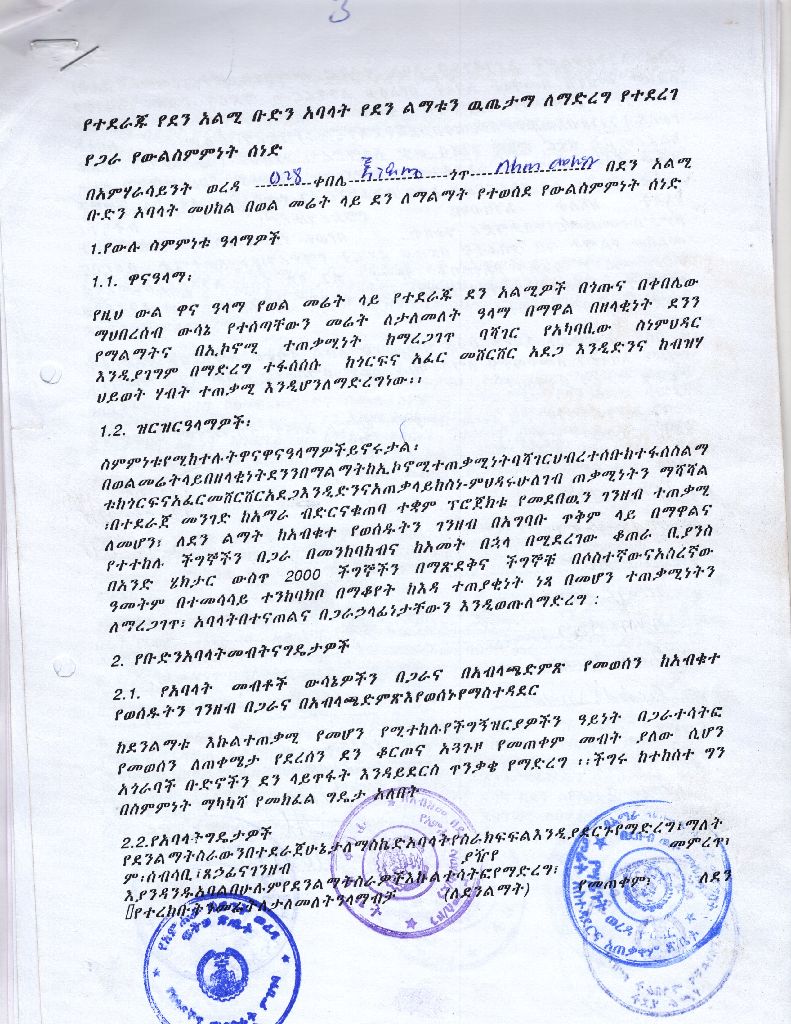 3
የተደራጁ የደን አልሚ ቡድን አባላት የደን ልማቱን ዉጤታማ ለማድረግ የተደረገ
የጋራ የውልስምምነት ሰነድ
በአምሃራሳይንት ወረዳ 028 ቀበሌ ጎጥ በደን አልሚ
ቡድን አባላት መሀከል በወል መሬት ላይ ደን ለማልማት የተወሰደ የውልስምምነት ሰነድ
1.የውሉ ስምምነቱ ዓላማዎች
1.1. ዋናዓላማ፡
የዚህ ውል ዋና ዓላማ የወል መሬት ላይ የተደራጁ ደን አልሚዎች በጎጡና በቀበሌው
ማህበረሰብ ውሳኔ የተሰጣቸውን መሬት ለታለመለት ዓላማ በማዋል በዘላቂነት ደንን
የማልማትና በኢኮኖሚ ተጠቃሚነት ከማረጋገጥ ባሻገር የአካባቢው ስነምህዳር
እንዲያገግም በማድረግ ተፋሰሰሱ ከጎርፍና አፈር መሸርሸር አደጋ እንዲድንና ከብዝሃ
ሀይወት ሃብት ተጠቃሚ እንዲሆንለማድረግነው፡፡
1.2. ዝርዝርዓላማዎች፡
ስምምነቱየሚከተሉትዋናዋናዓላማዎችይኖሩታል፡
በወልመሬትላይበዘላቂነትደንንበማልማትከኢኮኖሚተጠቃሚነትባሻገርሀብረተሰቡከተፋሰስልማ
ቱከጎርፍናአፈርመሸርሸርአደጋእንዲድንናአጠቃላይከስነ-ምህዳሩሁለገብ ጠቃሚነትን ማሻሻል
፡በተደራጀ መንገድ ከአማራ ብድርናቁጠባ ተቋም ፕሮጀክቱ የመደበዉን ገንዘብ ተጠቃሚ
ለመሆን፤ ለደን ልማት ከአብቁተ የወሰዱትን ገንዘብ በአግባቡ ጥቅም ላይ በማዋልና
የተተከሉ ችግኞችን በጋራ በመንከባከብና ከአመት በኋላ በሚደረገው ቆጠራ ቢያንስ
በአንድ ሄክታር ውስጥ 2000 ችግኞችን በማጽደቅና ችግኞቹ በሶስተኛውናአስረኛው
ዓመትም በተመሳሳይ ተንከባክቦ በማቆየት ከእዳ ተጠያቂነት ነጻ በመሆን ተጠቃሚነትን
ለማረጋገጥ፤ አባላትበተናጠልና በጋራኃላፊነታቸውን እንዲወጡለማድረግ :
2. የቡድንአባላትመብትናግዴታዎች
2.1. የአባላት መብቶች ውሳኔዎችን በጋራና በአብላጫድምጽ የመወሰን ከአብቁተ
የወሰዱትን ገንዘብ በጋራና በአብላጫድምጽእየወሰኑየማስተዳደር
ከደንልማቱ እኩልተጠቃሚ የመሆን የሚተከሉየችግኝዝርያዎችን ዓይነት በጋራተሳትፎ
የመወሰን ለጠቀሜታ የደረሰን ደን ቆርጦና አጓጉዞ የመጠቀም መብት ያለው ሲሆን
አጎራባች ቡድኖችን ደን ላይጥፋት እንዳይደርስ ጥንቃቄ የማድረግ ፡፡ችግሩ ከተከሰተ ግን
በስምምነት ማካካሻ የመክፈል ግዴታ አለበት
2.2.የአባላትግዴታዎች
የደንልማትስራውንበተደራጀሁኔታለማስኬድአባላትየስራክፍፍልእንዲያደርጉየማድረግ፤ማለት
ም፡ሰብሳቢ፤ጸኃፊናገንዘብ ያዥየ መምረጥ፤
እያንዳንዱአባልበሁሉምየደንልማትስራዎችእኩልተሳትፎየማድረግ፤
የተረከቡትንመሬትለታለመለትዓላማብቻ (ለደንልማት) የመጠቀም፤ ለደን